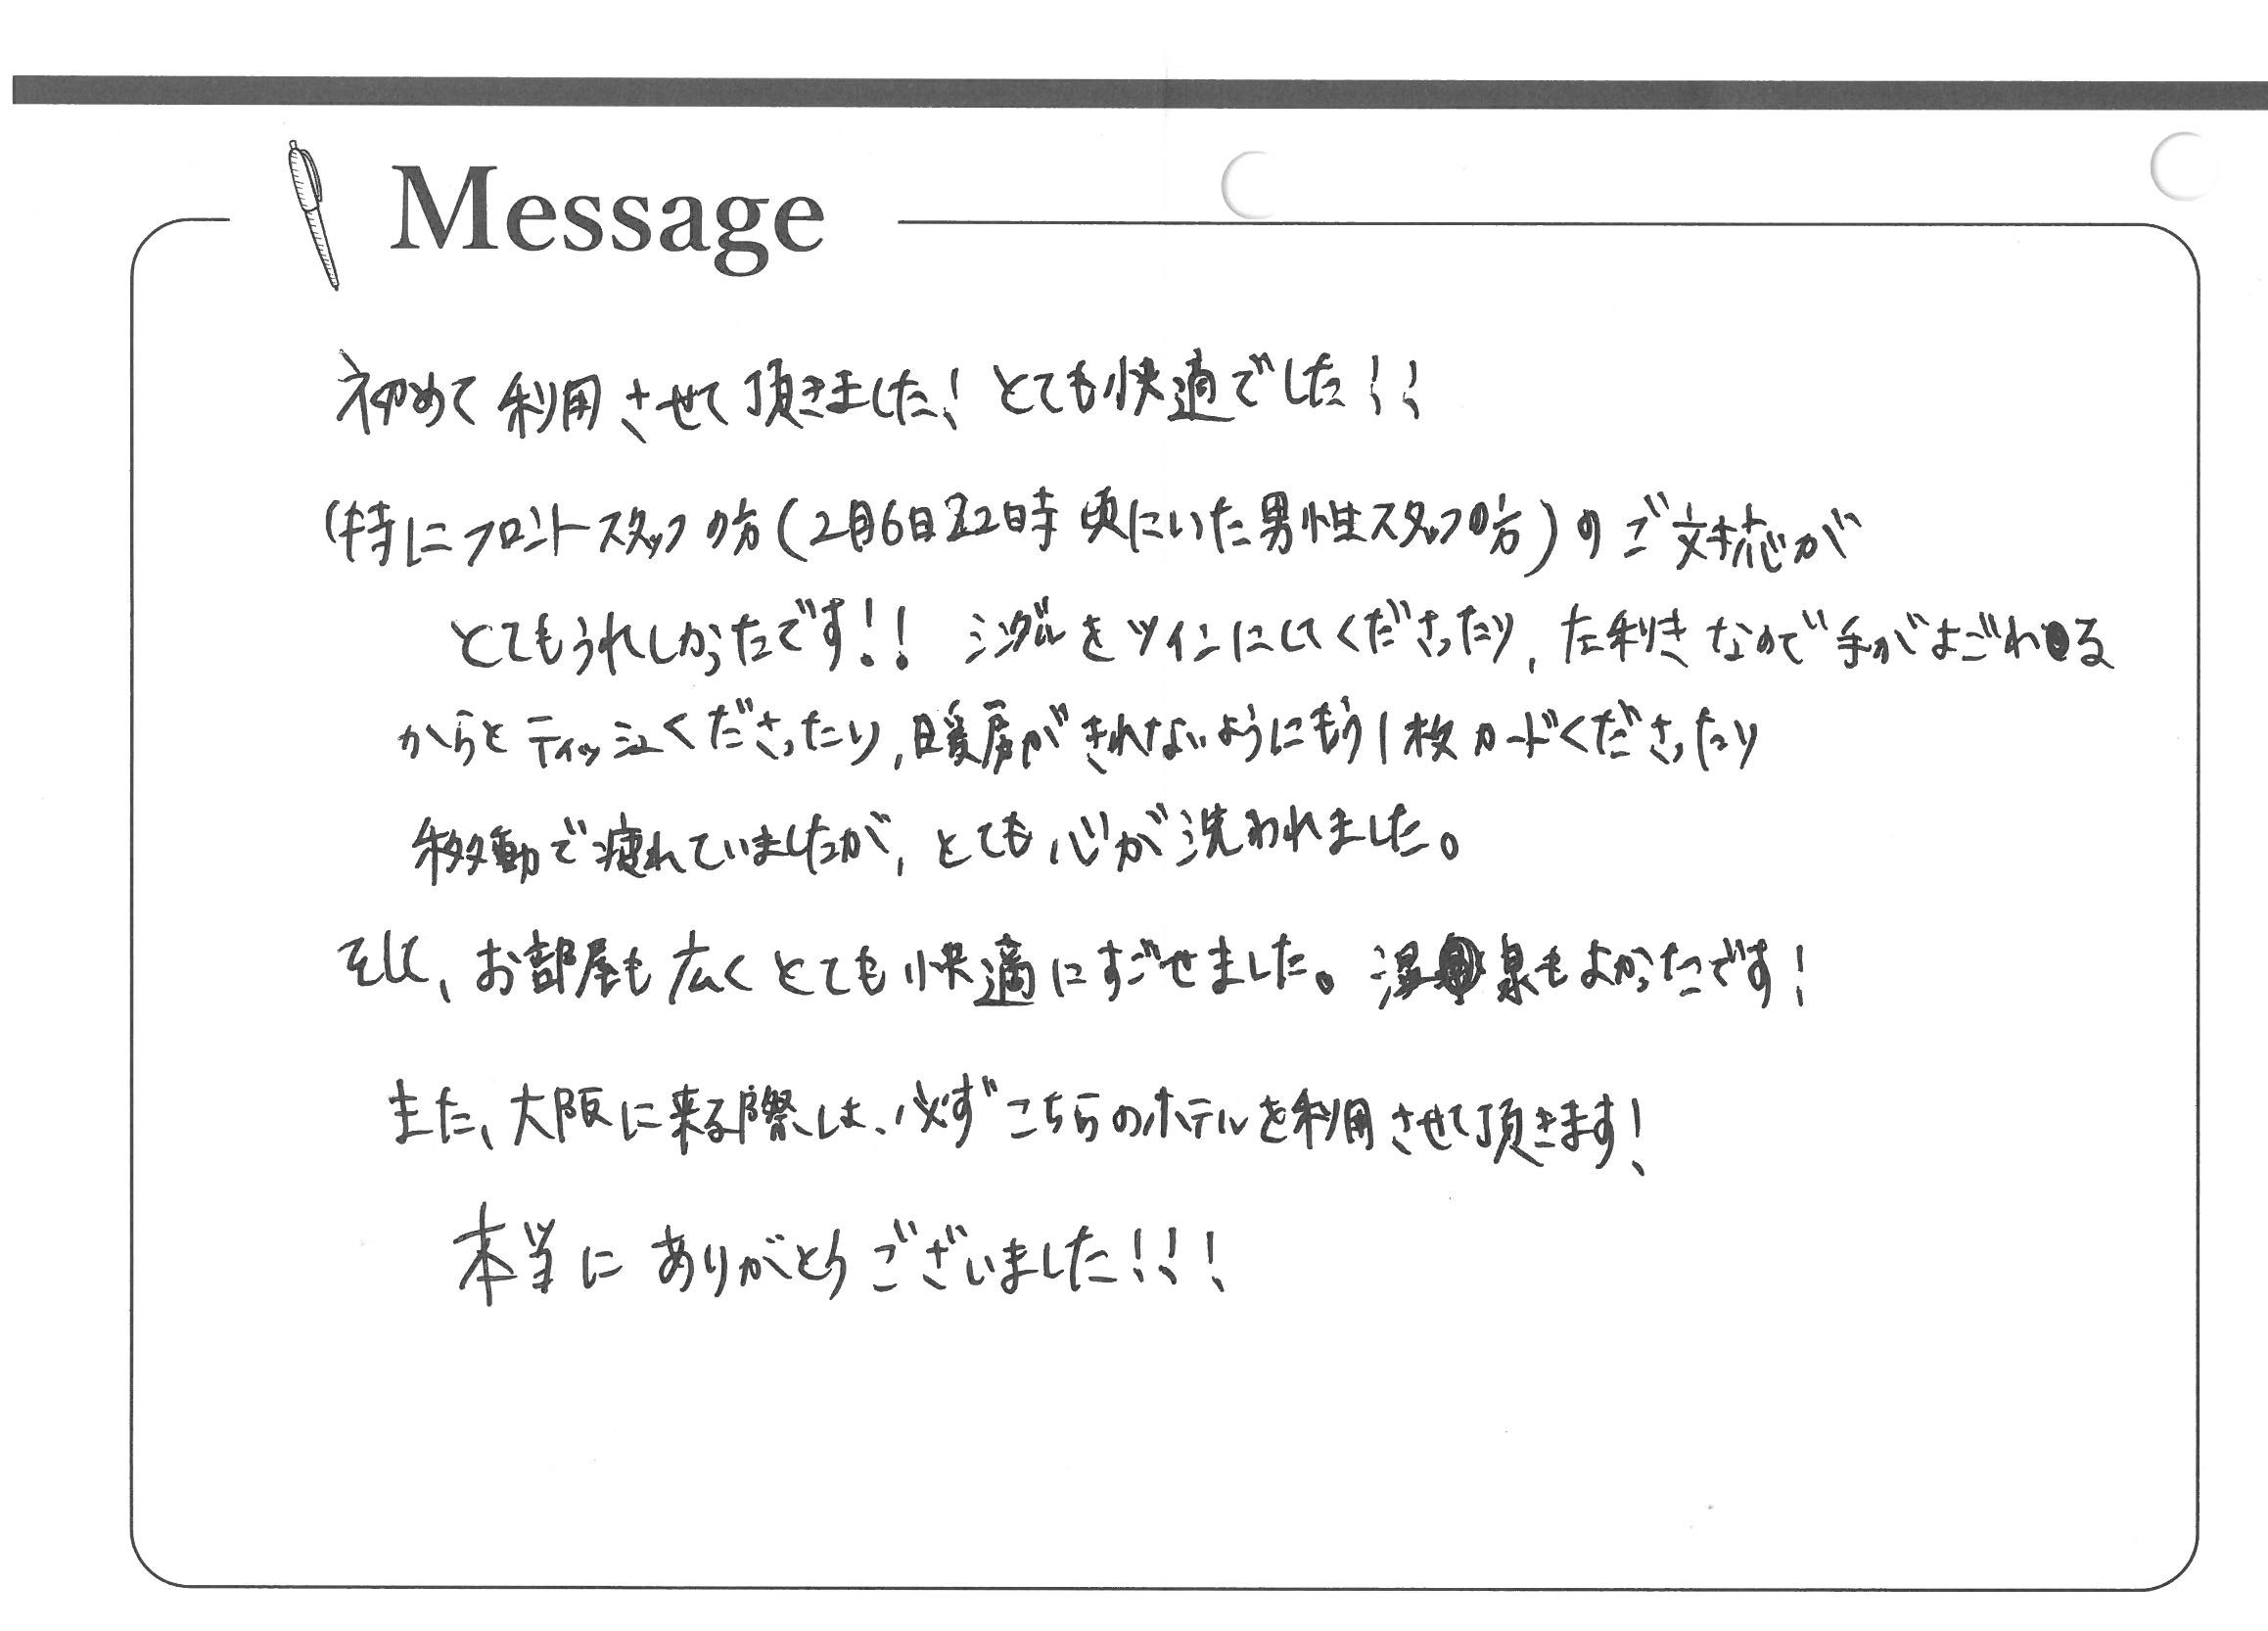 Message
初めて利用させて頂きました! とても快適でした!!
(特にフロントスタッフの方(2月6日22時頃にいた男性スタッフの方)のご対応が
とてもうれしかったです!! シングルをツインにしてくださったり, 左利きなので手がよごれる
からとティッシュくださったり, 暖房がきれないようにもう1枚カードくださったり
移動で疲れていましたが, とても心が洗われました。
そして、お部屋も広くとても快適にすごせました。温泉もよかったです!
また、大阪に来る際は、必ずこちらのホテルを利用させて頂きます!
本当にありがとうございました!!!